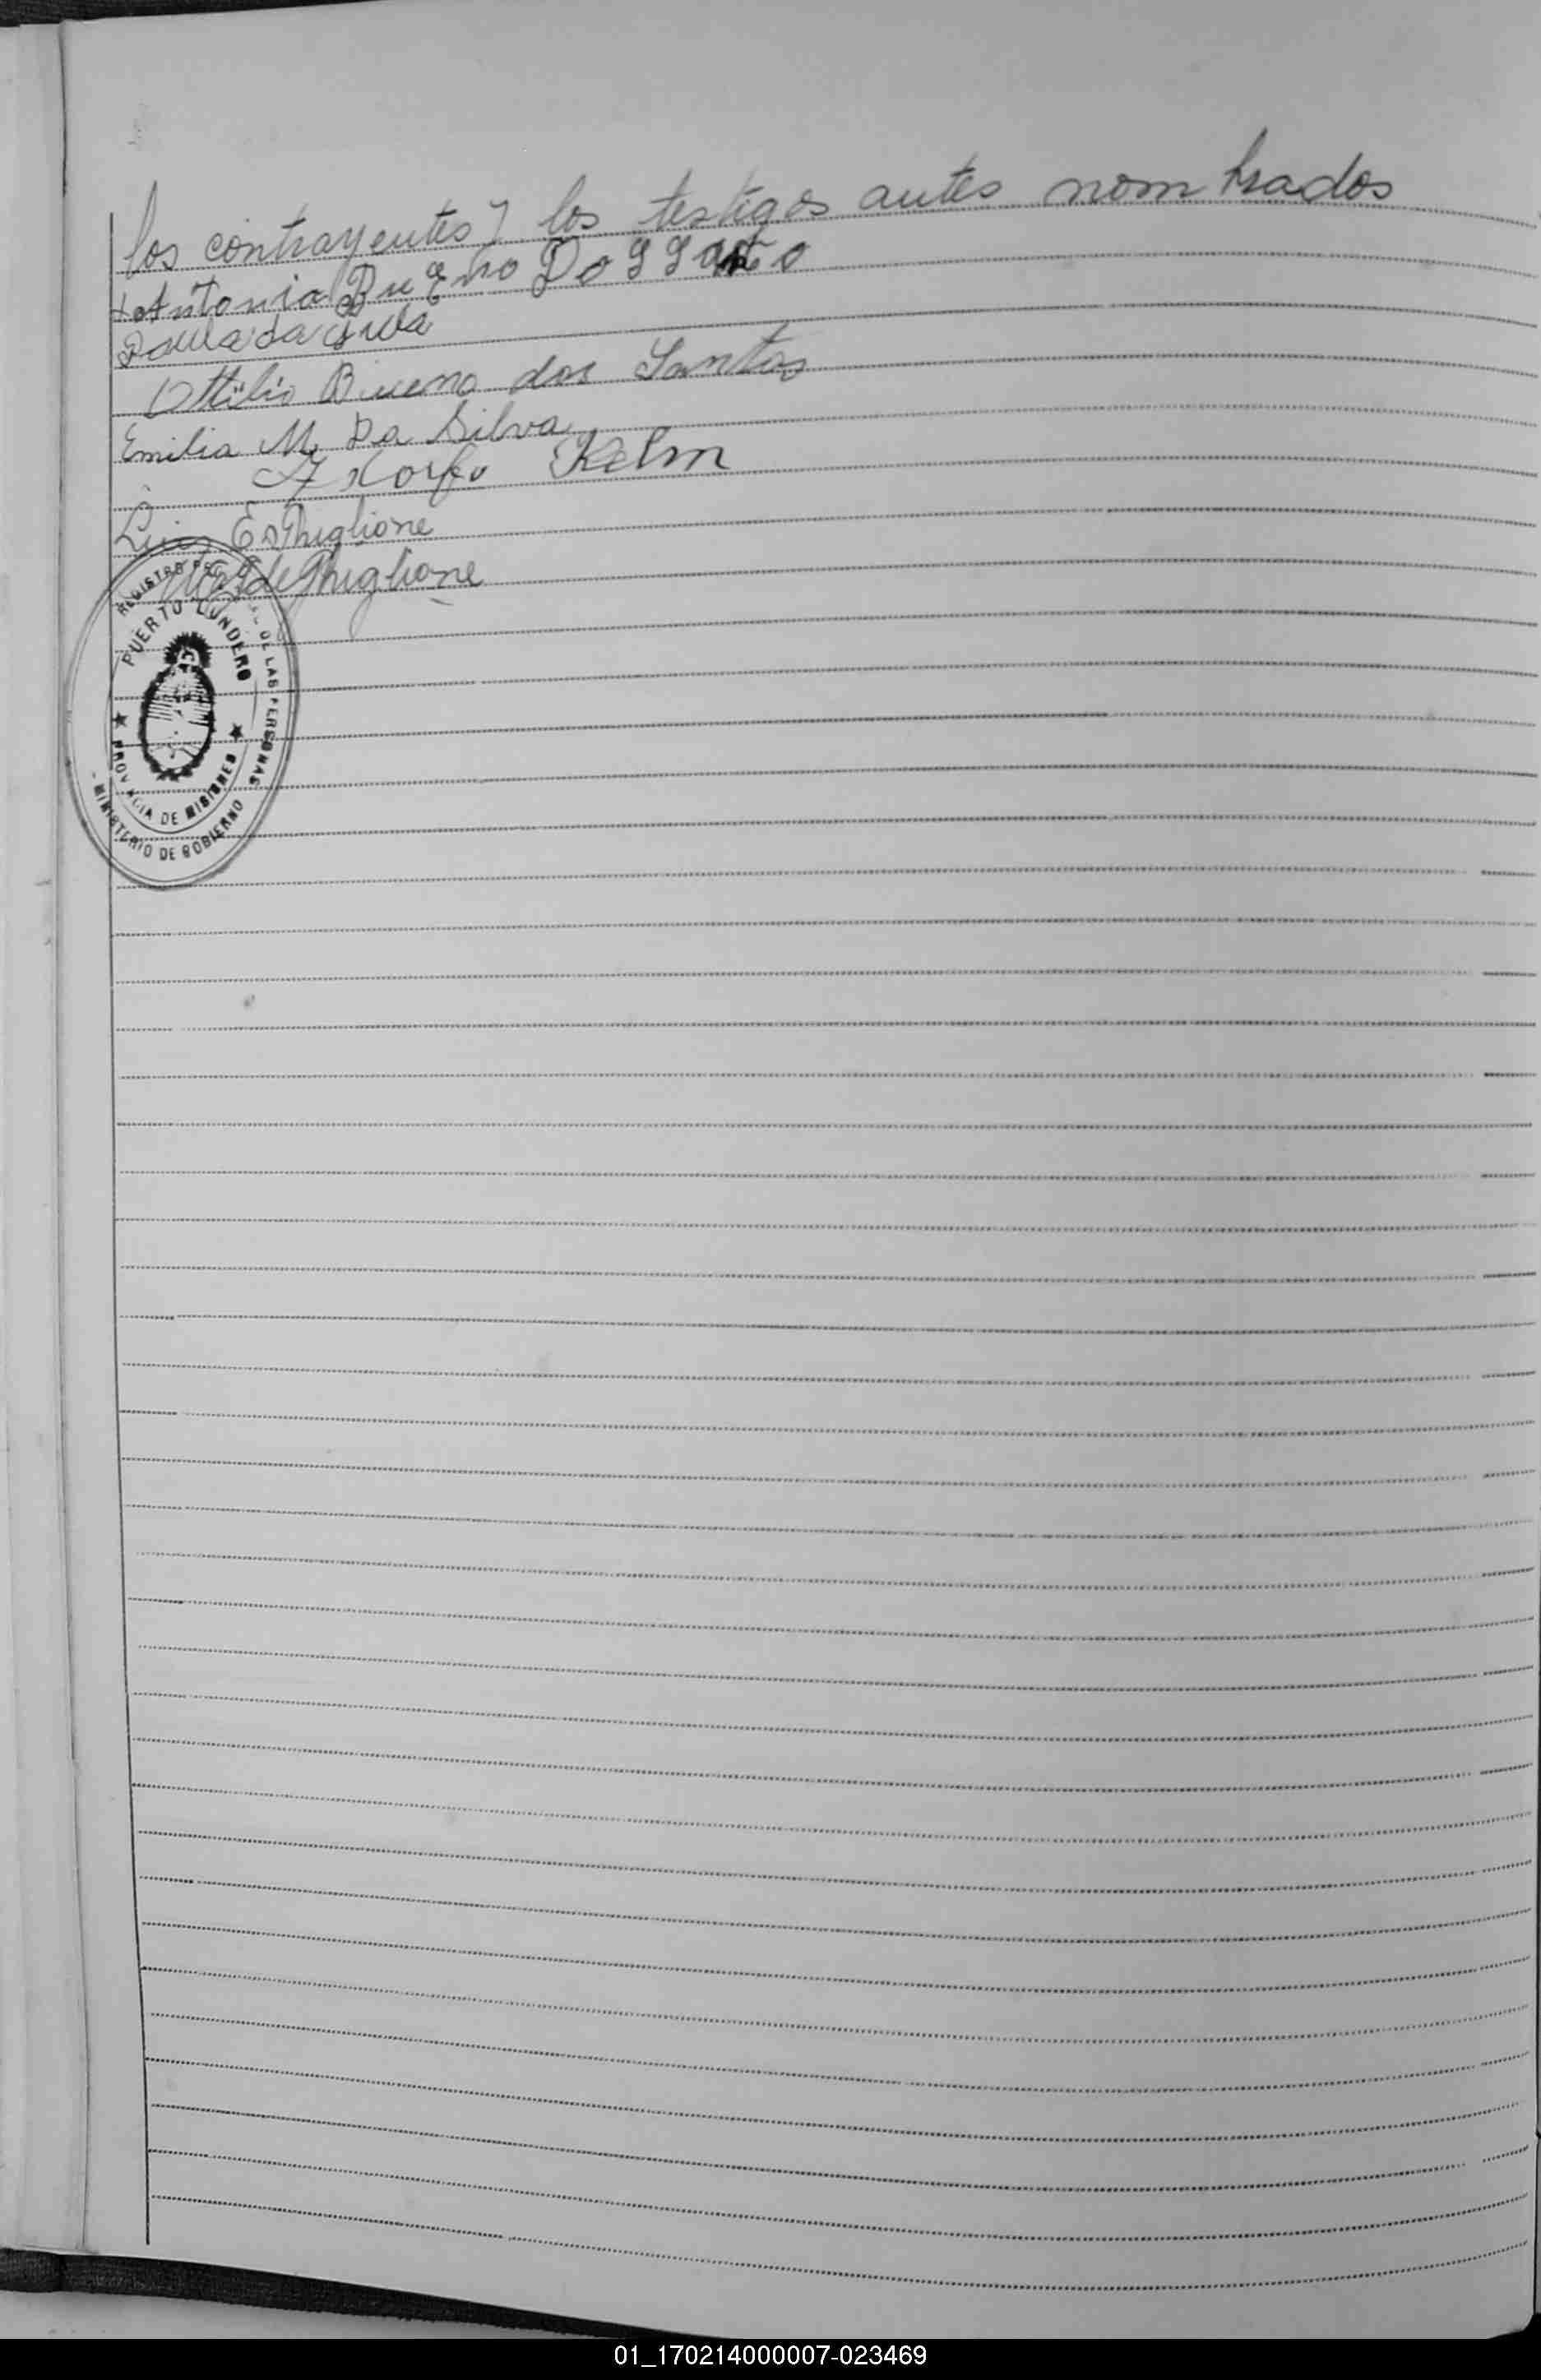 los contrayentes y los testigos antes nombrados
Antonia BuEno DoSSanto
Paula da Silva
Ottilio Bueno dos Santos
Emilia M. Da Silva
Kelm
Ghiglione
de Ghiglione
REGISTRO DE LAS PERSONAS
PUERTO LONDERO
PROVINCIA DE MISIONES
MINISTERIO DE GOBIERNO
01_170214000007-023469